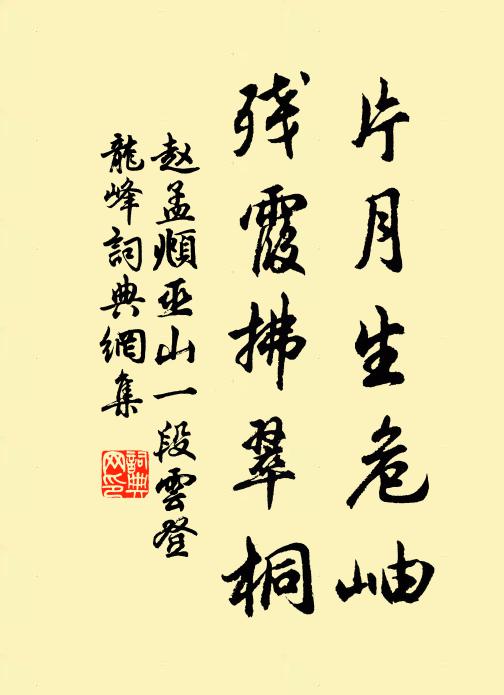 片月生危岫
残霞拂翠桐
赵孟頫巫山一段雲登
龍峰詞典網集
詞典网印